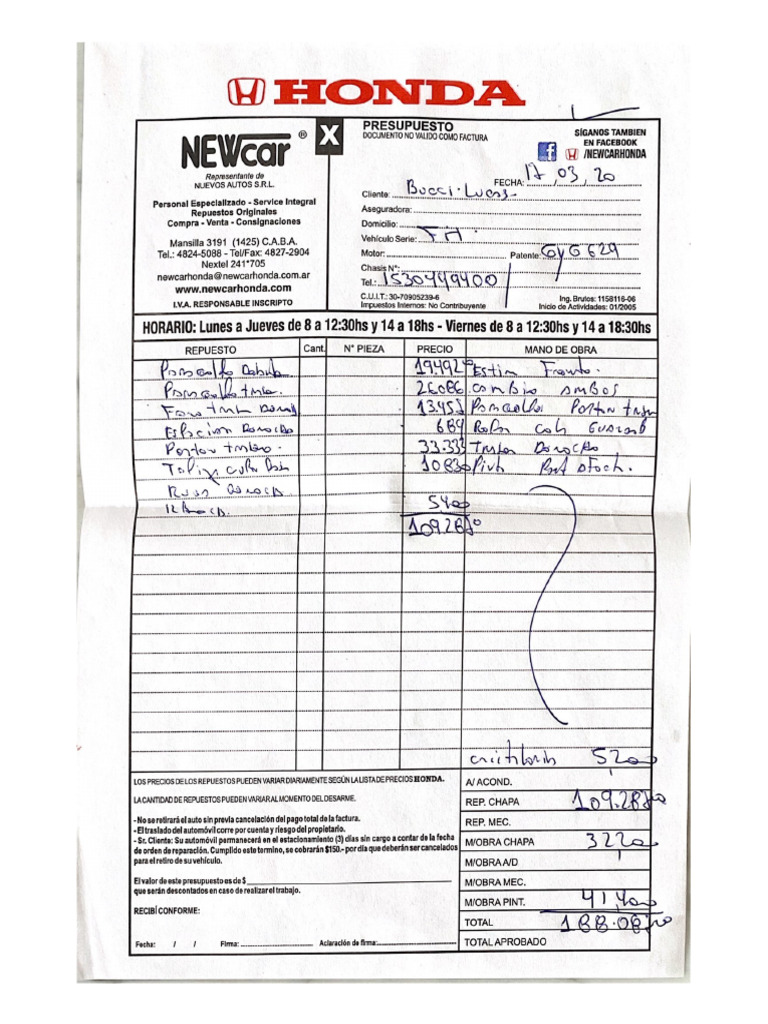 HONDA
NEWcar ®
Representante de
NUEVOS AUTOS S.R.L.
Personal Especializado - Service Integral
Repuestos Originales
Compra - Venta - Consignaciones
Mansilla 3191 (1425) C.A.B.A.
Tel.: 4824-5088 - Tel/Fax: 4827-2904
Nextel 241*705
newcarhonda@newcarhonda.com.ar
www.newcarhonda.com
I.V.A. RESPONSABLE INSCRIPTO
X
PRESUPUESTO
DOCUMENTO NO VALIDO COMO FACTURA
SÍGANOS TAMBIEN
EN FACEBOOK
f /NEWCARHONDA
FECHA: 17,03,20
Cliente: Bucci. Lucas
Aseguradora:
Domicilio:
Vehículo Serie: FIT
Motor: Patente: GYG 629
Chasis N°:
Tel.: 1530449400
C.U.I.T.: 30-70905239-6
Impuestos Internos: No Contribuyente
Ing. Brutos: 1158116-06
Inicio de Actividades: 01/2005
HORARIO: Lunes a Jueves de 8 a 12:30hs y 14 a 18hs - Viernes de 8 a 12:30hs y 14 a 18:30hs
REPUESTO Cant. N° PIEZA PRECIO MANO DE OBRA
19.492
26086 cambio ambos
13.455
684
Porton trasero 33.333
10830
5400
109.280
5200
LOS PRECIOS DE LOS REPUESTOS PUEDEN VARIAR DIARIAMENTE SEGÚN LA LISTA DE PRECIOS HONDA.
LA CANTIDAD DE REPUESTOS PUEDEN VARIAR AL MOMENTO DEL DESARME.
- No se retirará el auto sin previa cancelación del pago total de la factura.
- El traslado del automóvil corre por cuenta y riesgo del propietario.
- Sr. Cliente: Su automóvil permanecerá en el estacionamiento (3) días sin cargo a contar de la fecha
de orden de reparación. Cumplido este termino, se cobrarán $150.- por día que deberán ser cancelados
para el retiro de su vehículo.
El valor de este presupuesto es de $
que serán descontados en caso de realizar el trabajo.
RECIBÍ CONFORME:
Fecha: / / Firma: Aclaración de firma:
A/ ACOND.
REP. CHAPA 109.280
REP. MEC.
M/OBRA CHAPA 32200
M/OBRA A/D
M/OBRA MEC.
M/OBRA PINT. 41,400
TOTAL 188.080
TOTAL APROBADO